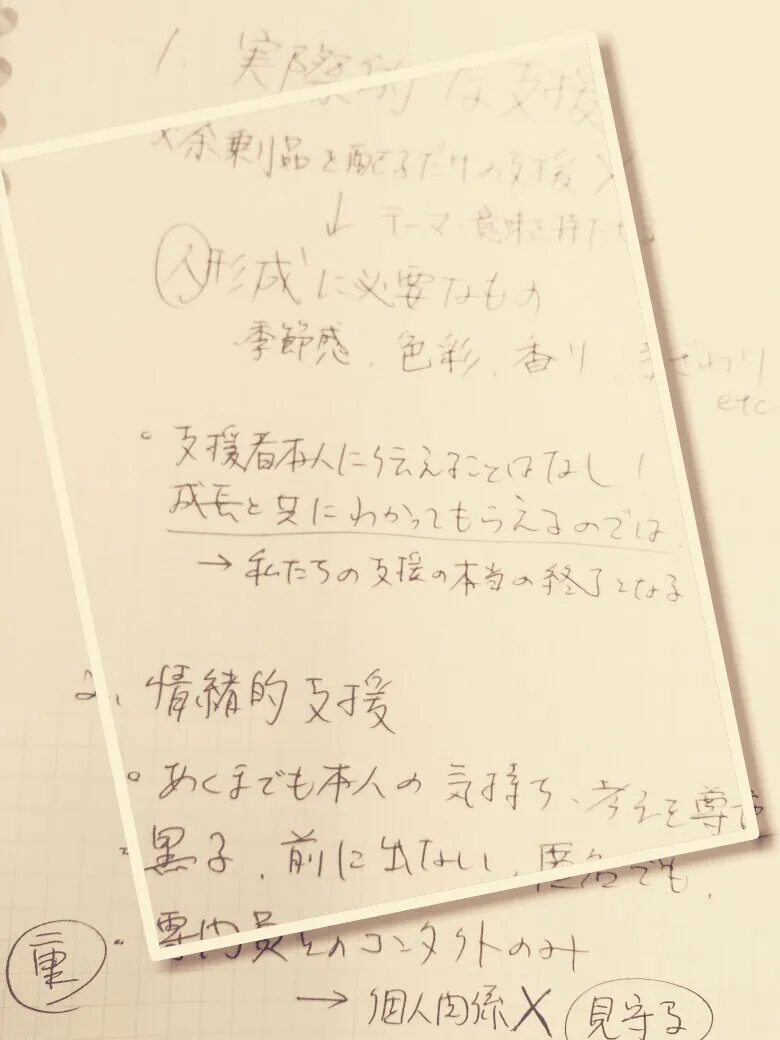 1. 実際的な支援
×余剰品を配るだけの支援 ×
↓ テーマ・意味を持たせる
人形成に必要なもの
季節感、色彩、香り、手ざわり
etc
。支援者本人に伝えることはなし!
成長と共にわかってもらえるのでは
→ 私たちの支援の本当の終了となる
2. 情緒的支援
。あくまでも本人の気持ち、考えを尊
・黒子、前に出ない、匿名でも、
・専門員とのコンタクトのみ
重
→ 個人関係× 見守る